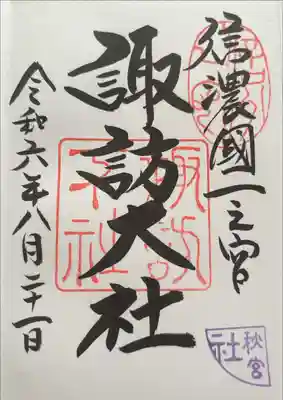 信濃國一之宮
諏訪大社
令和六年八月二十一日
諏訪大社
秋宮
社